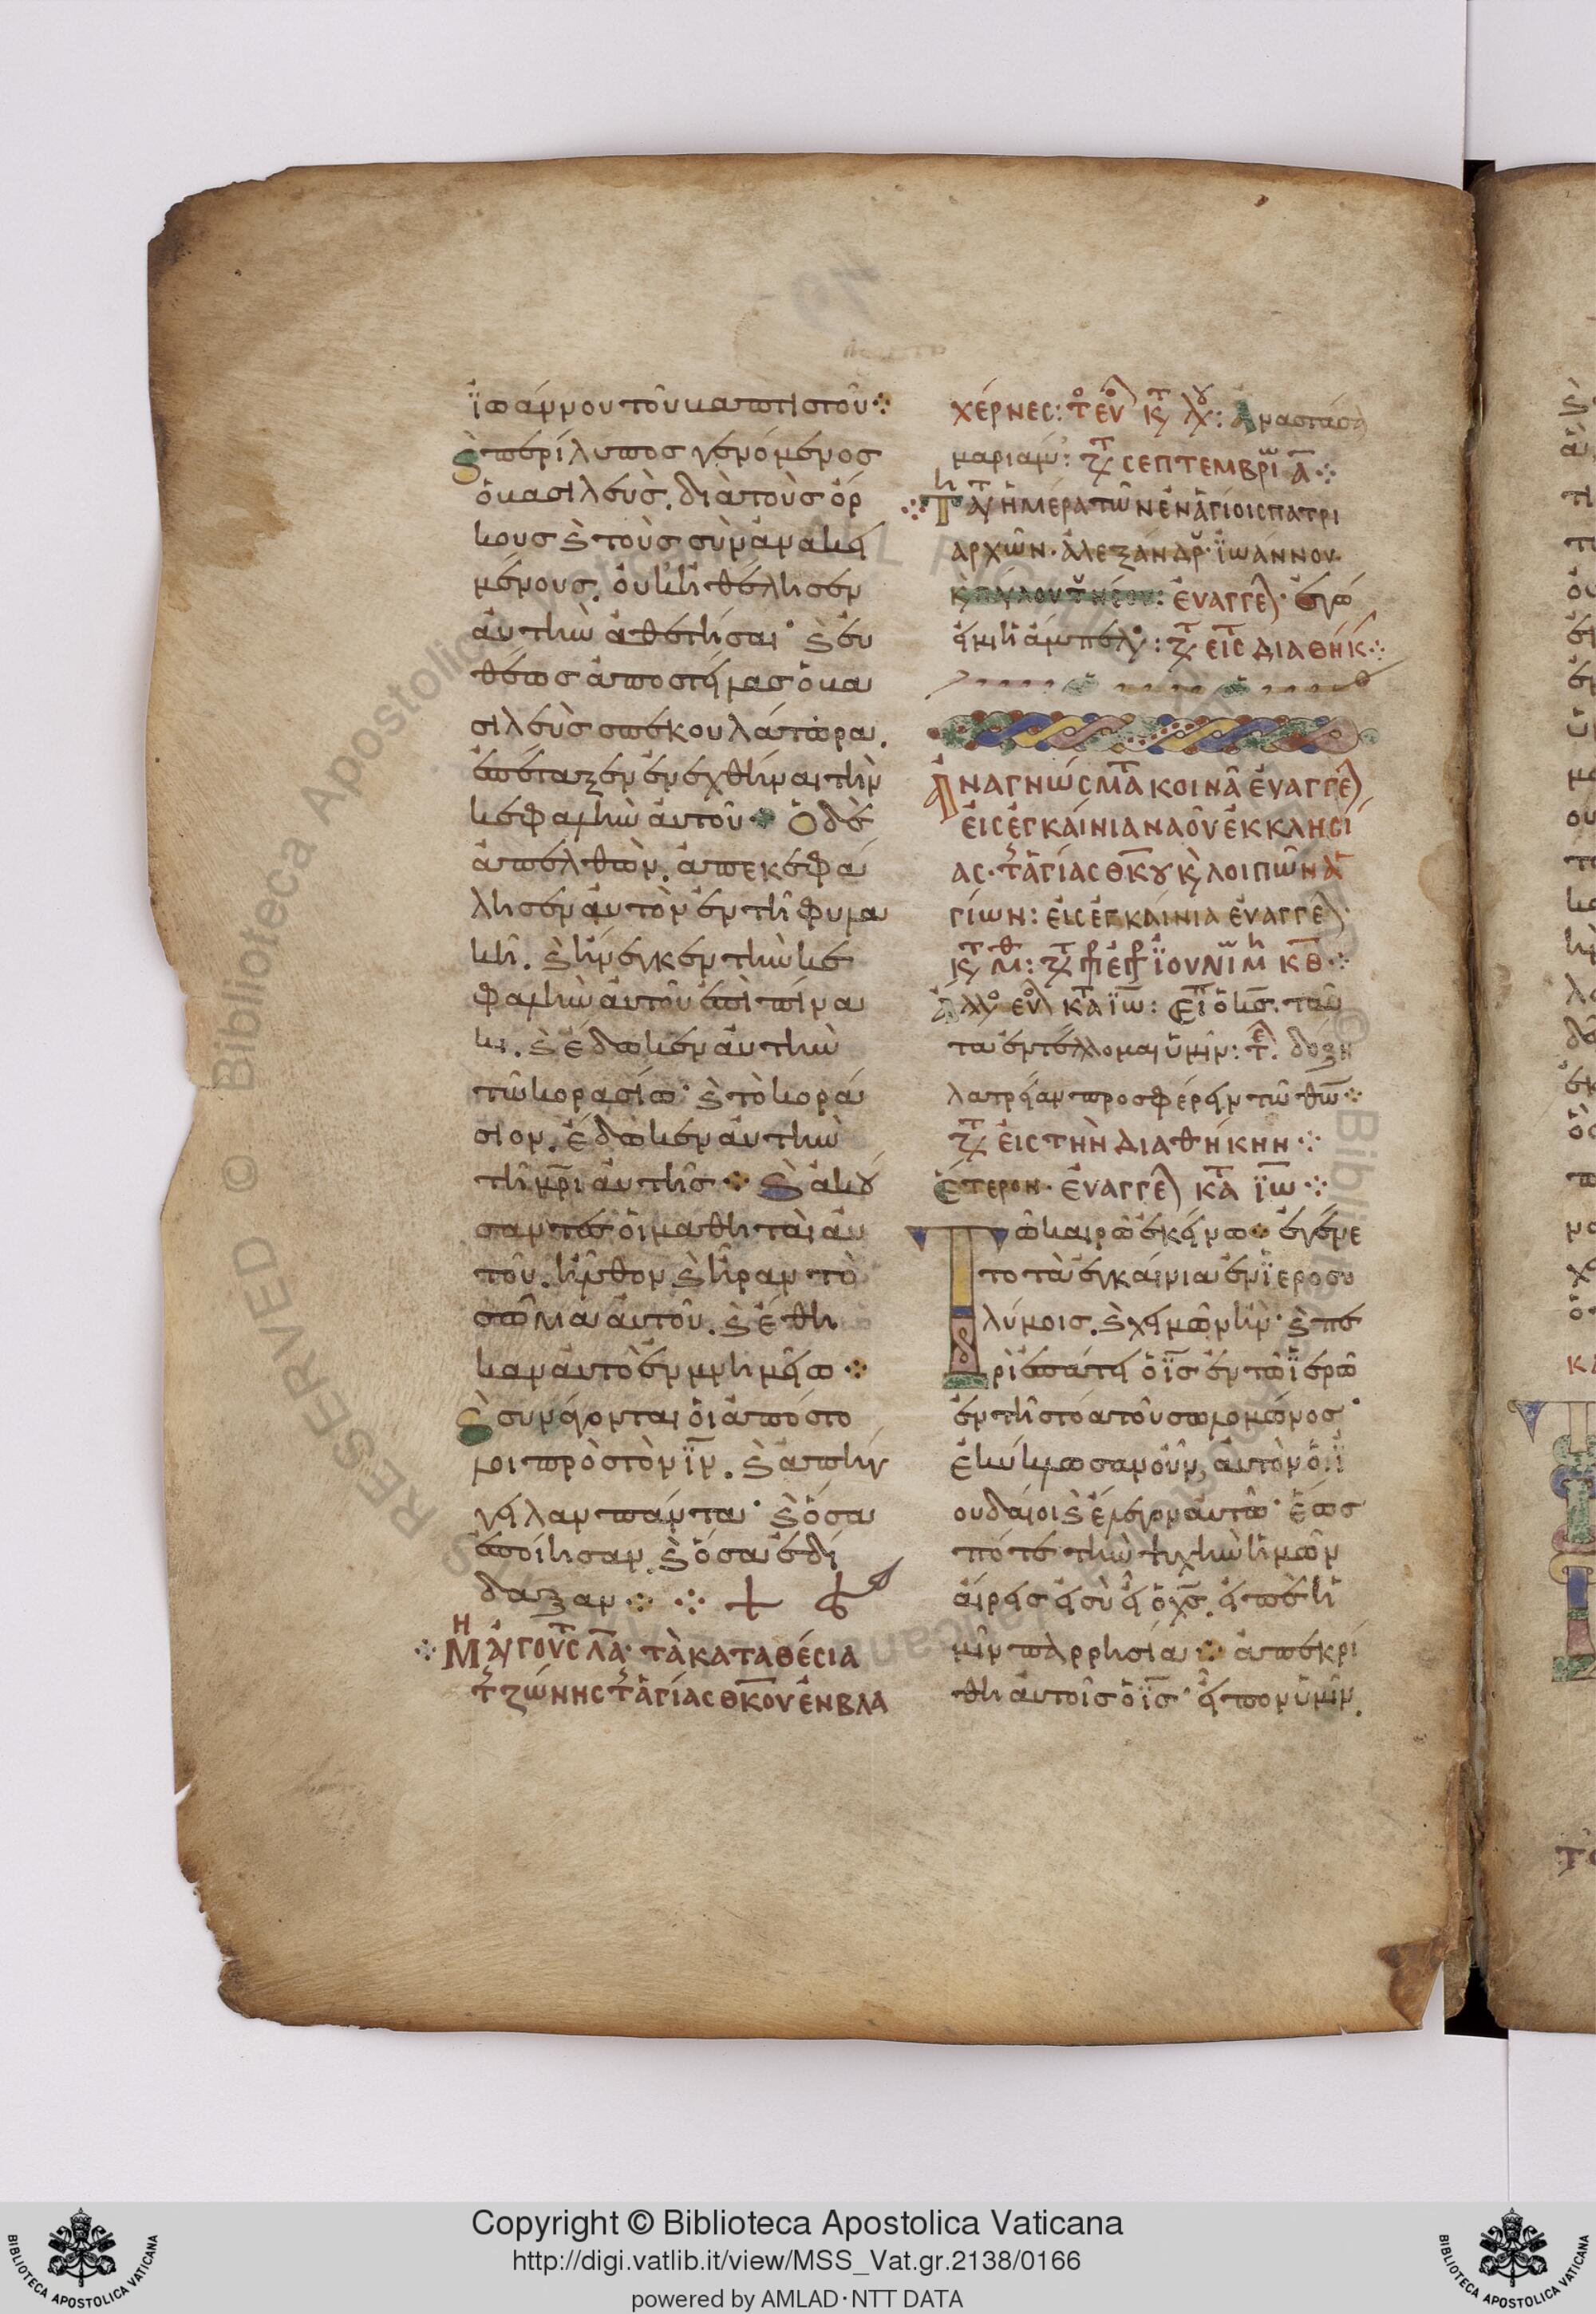 ϊωάννου τοῦ βαπτιστοῦ
Καὶ περίλυπος γενόμενος
ὁ βασιλεὺς. διὰ τοὺς ὅρ
κους καὶ τοὺς συνἀνακει
μένους. οὐκ ἠθέλησεν
αὐτὴν ἀθετῆσαι· καὶ εὐ
θέως ἀποστείλας ὁ βα
σιλεὺς σπεκουλάτωρα.
ἐπέταξεν ἐνεχθῆναι τὴν
κεφαλὴν αὐτοῦ· Ὁ δὲ
ἀπελθὼν. ἀπεκεφά
λησεν αὐτὸν ἐν τῆ φυλα
κῆ. καὶ ἤνεγκεν τὴν κε
φαλὴν αὐτοῦ ἐπὶ πίνα
κι. καὶ ἔδωκεν αὐτὴν
τῶ κορασίω· καὶ τὸ κορά
σιον. ἔδωκεν αὐτὴν
τῆ μρι αὐτῆς· Καὶ ἀκού
σαντες οἱ μαθηταὶ αὐ
τοῦ. ἦλθον καὶ ἦραν τὸ
σῶμα αὐτοῦ. καὶ ἔθη
καν αὐτὸ ἐν μνημείω
Καὶ συνάγονται οἱ ἀπόστο
λοι πρὸς τὸν ιν. καὶ ἀπήγ
γειλαν πάντα· καὶ ὅσα
ἐποίησαν. καὶ ὅσα ἐδί
δαξαν
Μη αυγουστ λα· τὰ καταθέσια
τ ζώνης τ ἁγίας θκου ἐν βλα
χέρνες: το ευ κτ λου: Ἀναστᾶσα
μαριάμ: ζτ σεπτεμβριω α
Τη αυτ ἡμέρα τῶν ἐν ἁγίοις πατρι
αρχῶν· ἀλεξάνδρ· ϊωάννου
καὶ παύλου τ νέου: εὐαγγελ· ἐγώ
εἰμι ἡ ἄμπελο: ζτ εις τ διαθήκ
Ἀναγνώσματα κοινὰ εὐαγγελ
εἰς ἐγκαίνια ναοῦ ἐκκλησί
ας· τ ἁγίας θκου καὶ λοιπῶν ἁ
γίων: εἰς ἐγκαίνια εὐαγγελ
ϊουνίω μη κθ
κατα ϊω: Ειπ ὁ κς. ταῦ
τα ἐντέλλομαι ὑμῖν: τελ. δόξη
λατρείαν προσφέρειν τῶ θω
ζτ εἰς τὴν διαθήκην
Ἕτερον· εὐαγγελ κατα ϊω
Τῶ καιρῶ ἐκείνω· ἐγένε
το τὰ ἐγκαίνια ἐν ϊεροσο
λύμοις. καὶ χειμῶν ἦν· καὶ πε
ριεπάτει ὁ ϊς ἐν τῶ ϊερῶ
ἐν τῆ στοᾶ τοῦ σολομῶνος·
Ἐκύκλωσαν οὖν αὐτὸν οἱ ϊ
ουδαίοι καὶ ἔλεγον αὐτῶ· ἕως
πότε τὴν ψυχὴν ἡμῶν
αἴρεις εἰ σὺ εἶ ὁ χς. εἰπὲ ἡ
μῖν παρρησία· ἀπεκρί
θη αὐτοῖς ὁ ϊς· εἶπον ὑμῖν.
RESERVED © Biblioteca Apostolica Vaticana
Copyright © Biblioteca Apostolica Vaticana
http://digi.vatlib.it/view/MSS_Vat.gr.2138/0166
powered by AMLAD·NTT DATA
BIBLIOTECA APOSTOLICA VATICANA
BIBLIOTECA APOSTOLICA VATICANA